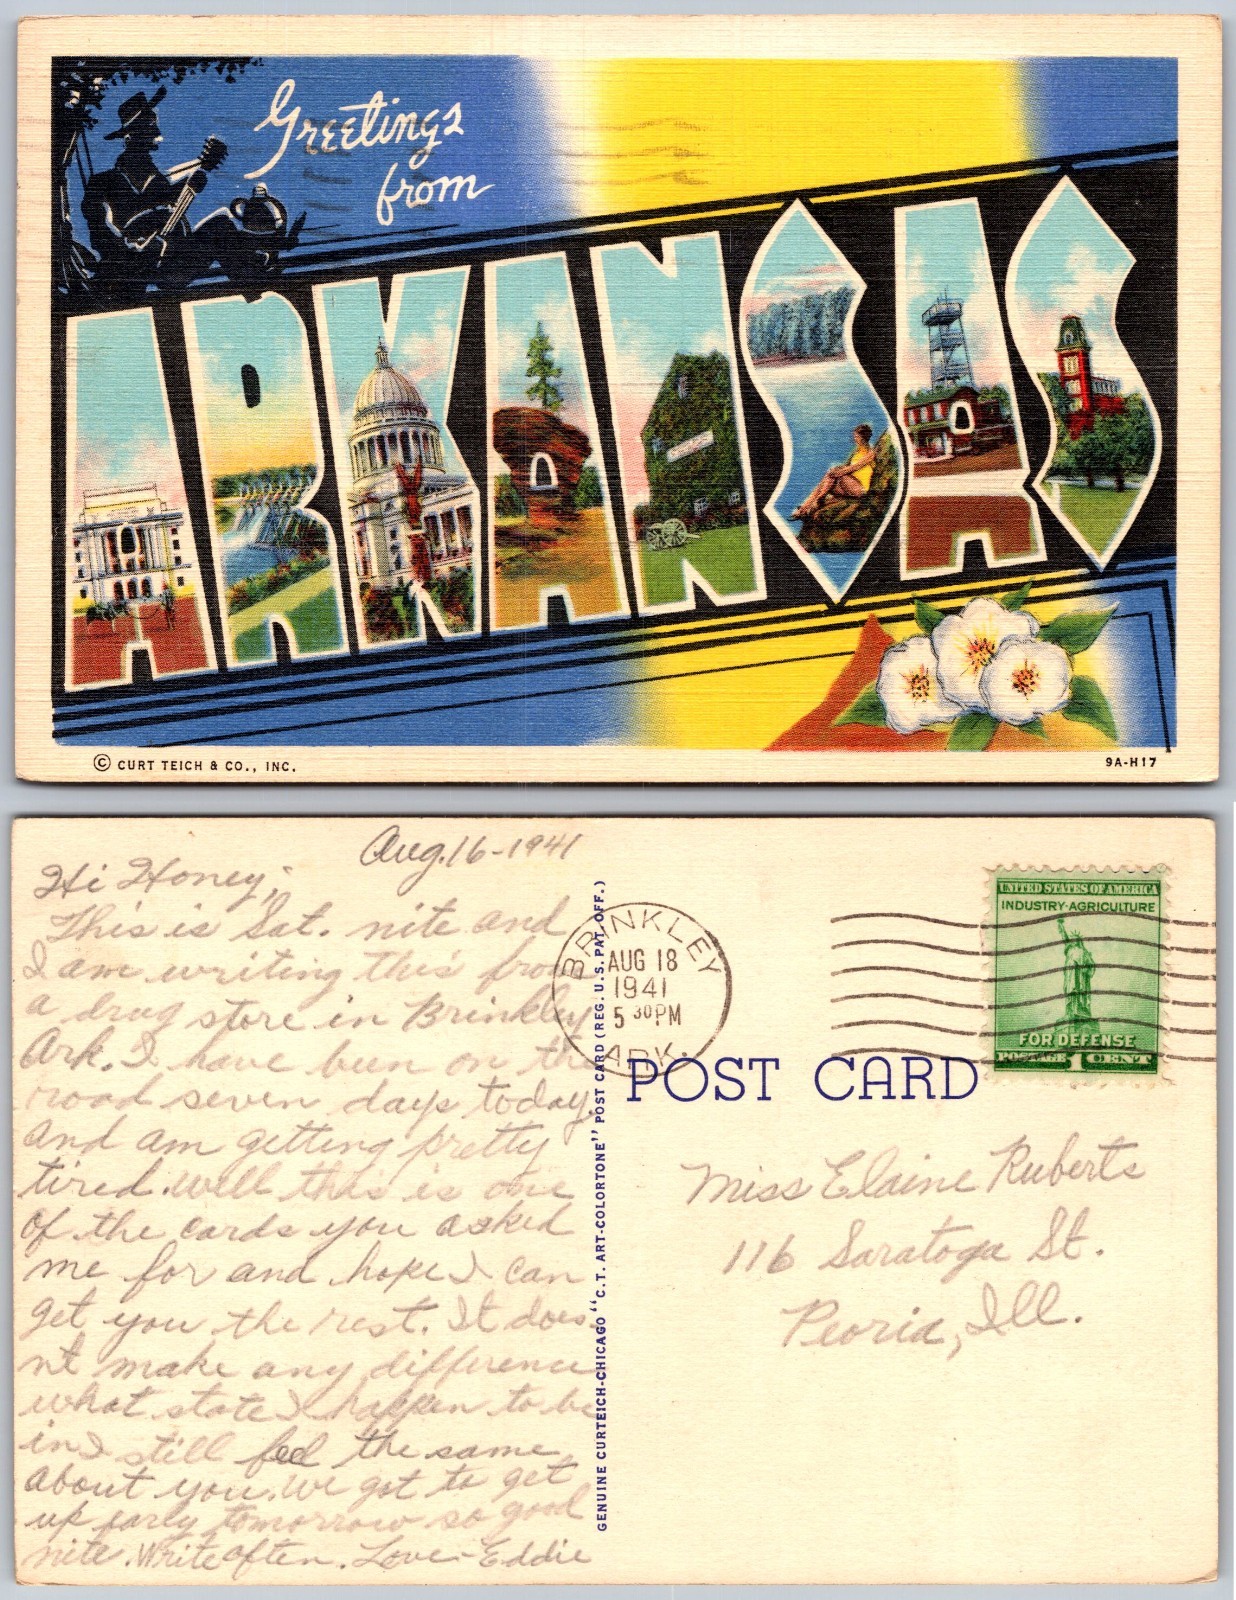 Greetings
from
ARKANSAS
© CURT TEICH & CO., INC.
9A-H17
Aug. 16-1941
Hi Honey;
This is Sat. nite and
I am writing this from
a drug store in Brinkley
Ark. I have been on the
road seven days today.
and am getting pretty
tired. well this is one
of the cards you asked
me for and hope I can
get you the rest. It does-
nt make any difference
what state I happen to be
in I still feel the same
about you. We got to get
up early tomorrow so good
nite. Write often. Love-Eddie
GENUINE CURTEICH-CHICAGO "C.T. ART-COLORTONE" POST CARD (REG. U.S. PAT. OFF.)
BRINKLEY
AUG 18
1941
5 30 PM
ARK.
UNITED STATES OF AMERICA
INDUSTRY-AGRICULTURE
FOR DEFENSE
POSTAGE 1 CENT
POST CARD
Miss Elaine Ruberts
116 Saratoga St.
Peoria, Ill.